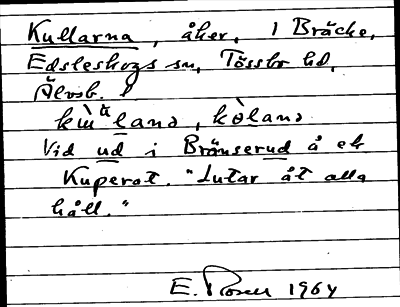 Kullarna, åker, i Bräcke,
Edsleskogs sn, Tössbo hd,
Älvsb. l
Vid ud i Bränserud å ek
Kuperat. "Lutar åt alla
håll."
E. 1964